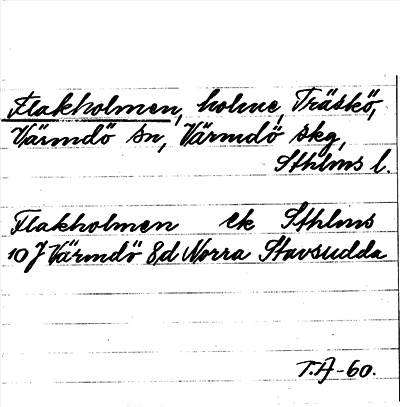 Flakholmen, holme, Träskö,
Värmdö sn, Värmdö skg,
Sthlms l.
Flakholmen ek Sthlms
10J Värmdö 8,d Norra Stavsudda
T.A-60.